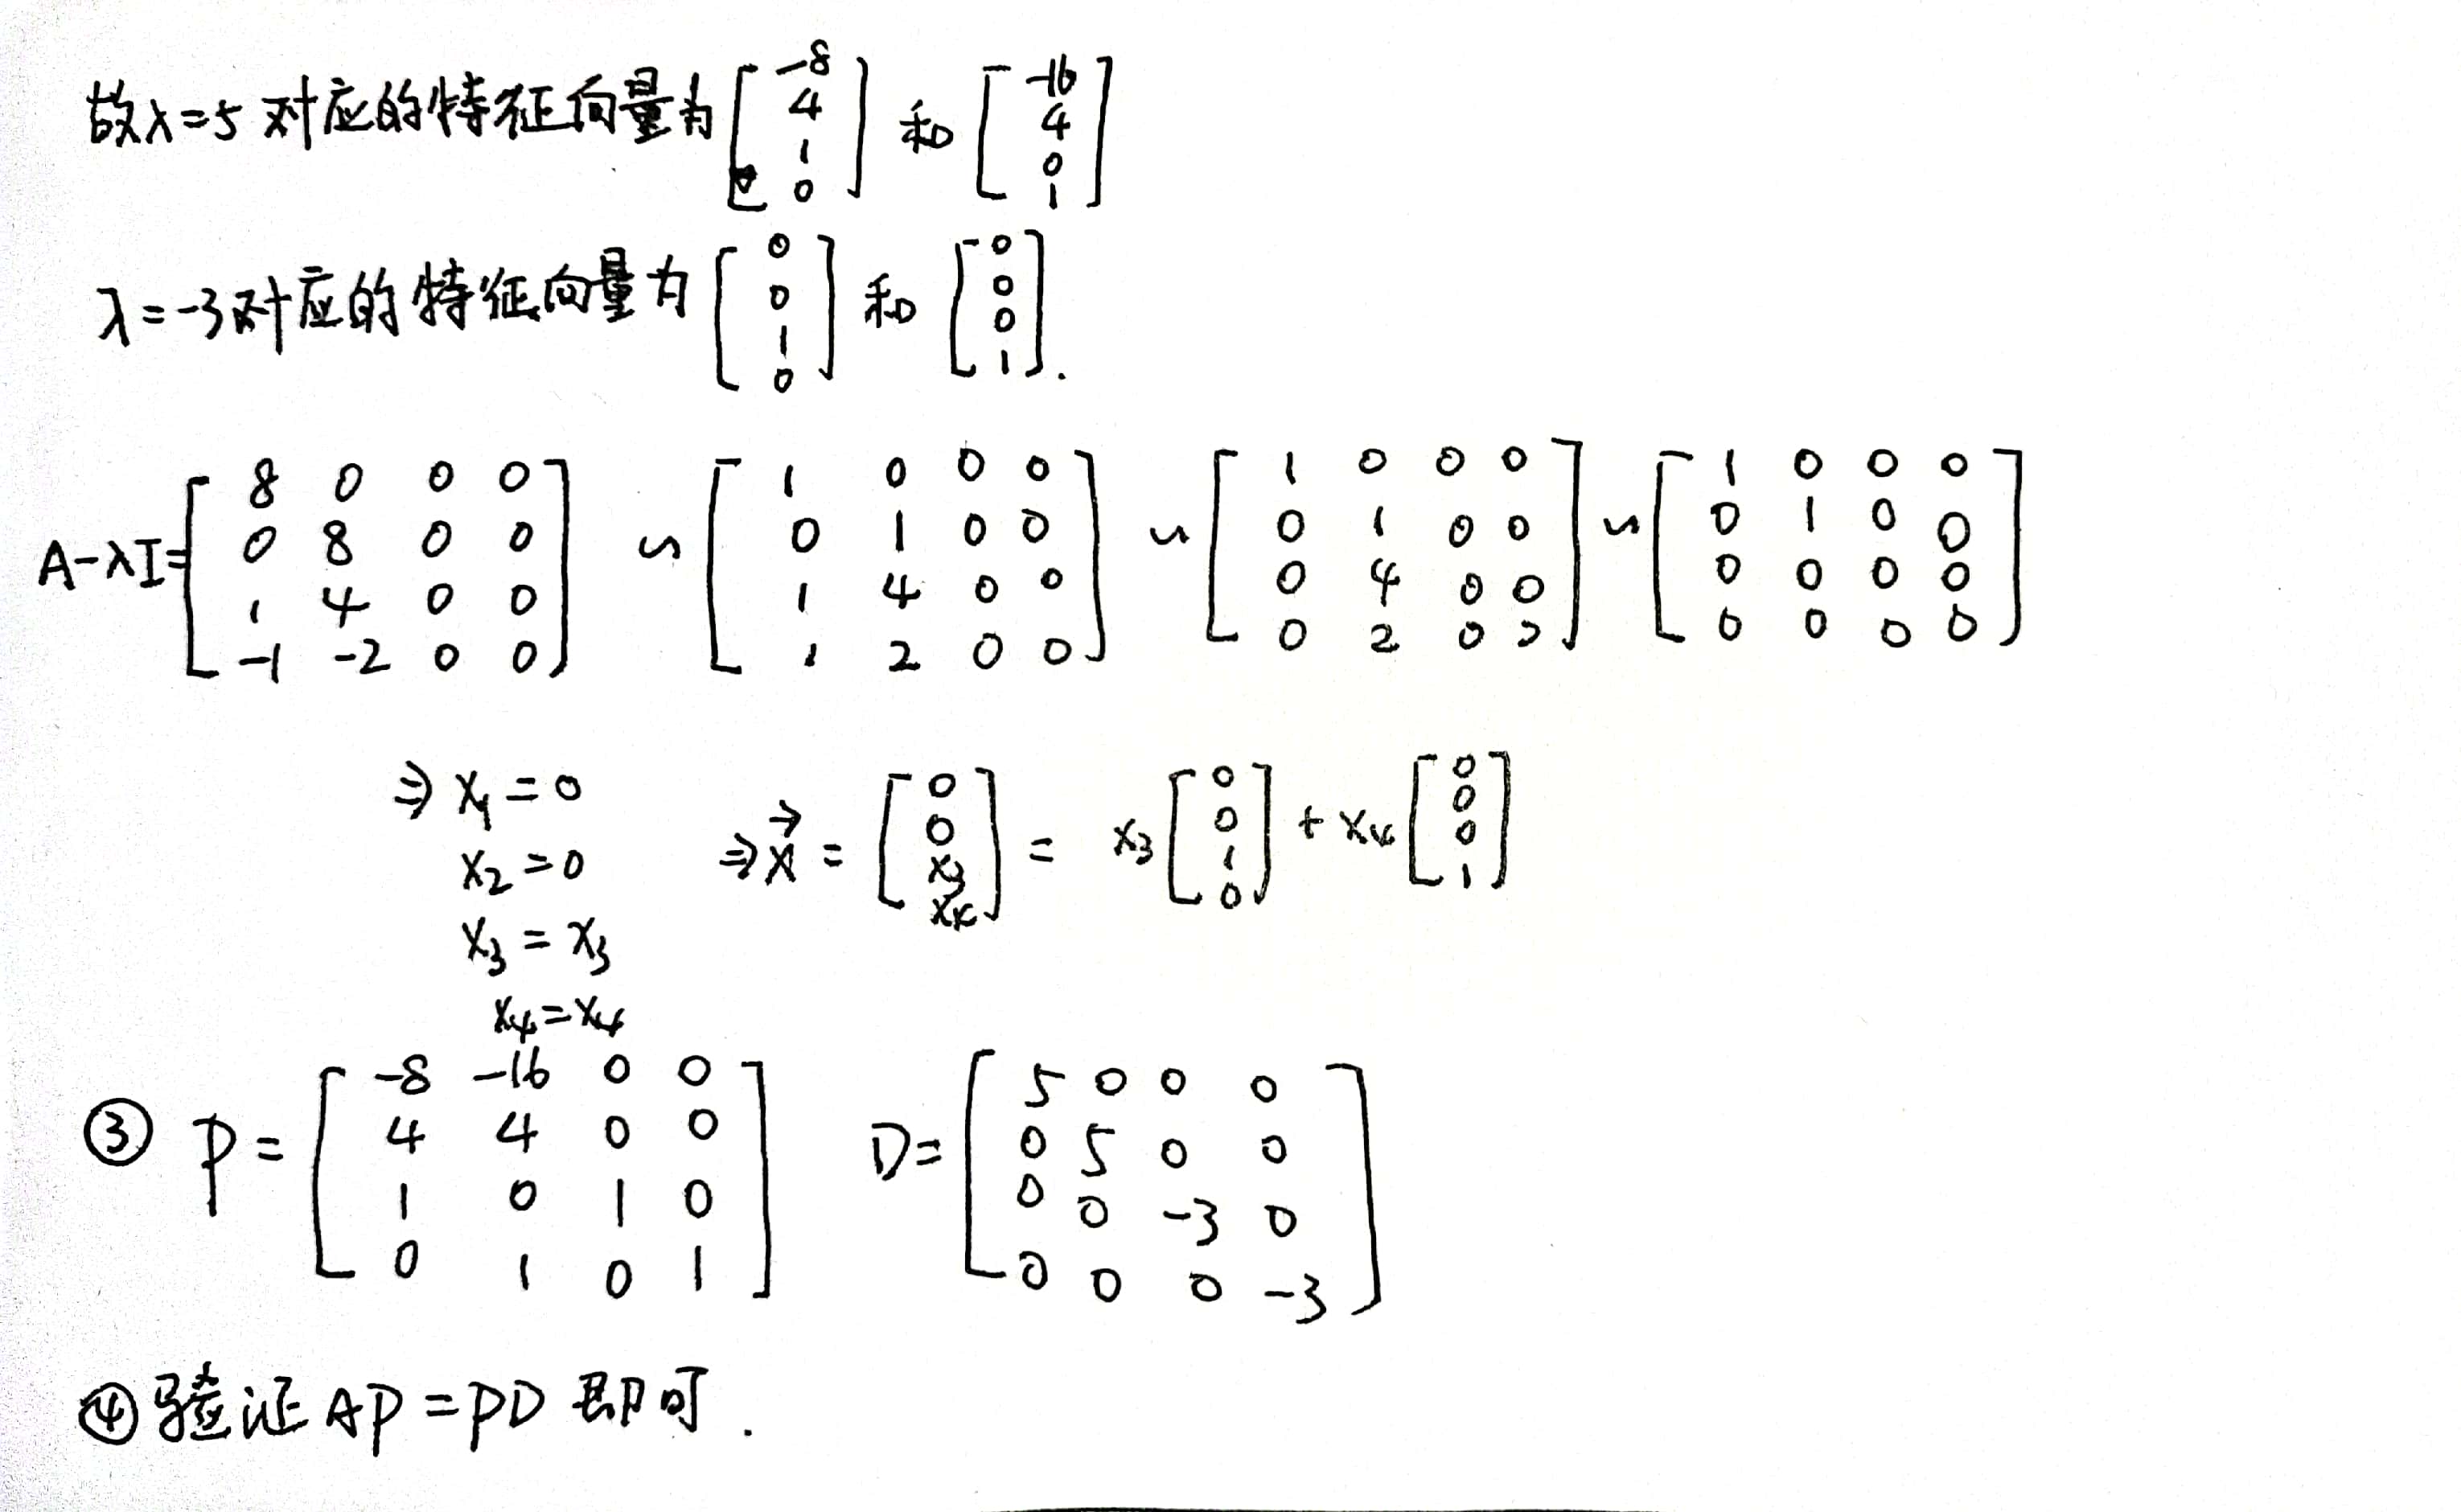 故λ=5 对应的特征向量为 [-8 4 1 0] 和 [-16 4 0 1]
λ=-3对应的特征向量为 [0 0 1 0] 和 [0 0 0 1].
A-λI= [8 0 0 0; 0 8 0 0; 1 4 0 0; -1 -2 0 0] ~ [1 0 0 0; 0 1 0 0; 1 4 0 0; 1 2 0 0] ~ [1 0 0 0; 0 1 0 0; 0 4 0 0; 0 2 0 0] ~ [1 0 0 0; 0 1 0 0; 0 0 0 0; 0 0 0 0]
⇒ x₁=0
x₂=0
x₃=x₃
x₄=x₄
⇒ x⃗ = [0 0 x₃ x₄] = x₃ [0 0 1 0] + x₄ [0 0 0 1]
③ P= [-8 -16 0 0; 4 4 0 0; 1 0 1 0; 0 1 0 1] D= [5 0 0 0; 0 5 0 0; 0 0 -3 0; 0 0 0 -3]
④ 验证 AP=PD 即可.